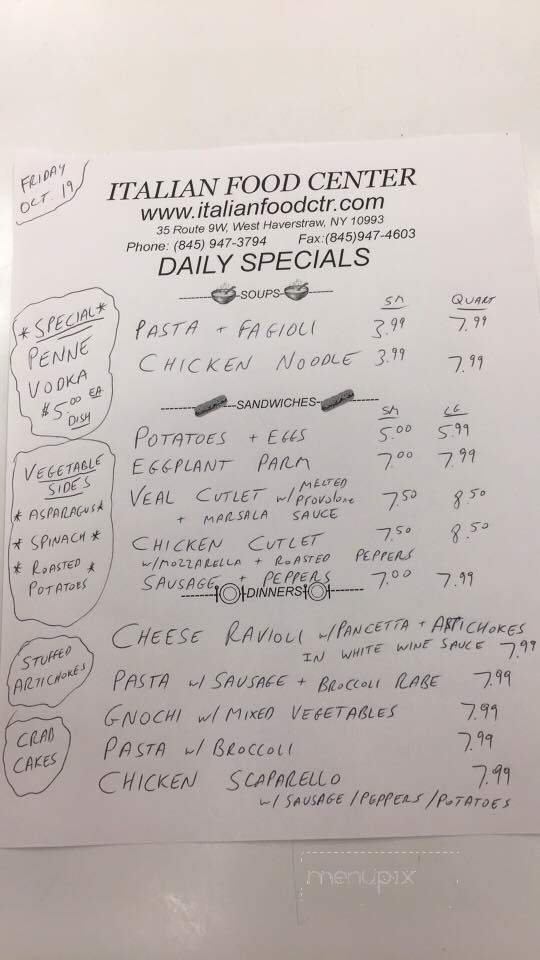 FRIDAY
OCT. 19
ITALIAN FOOD CENTER
www.italianfoodctr.com
35 Route 9W, West Haverstraw, NY 10993
Phone: (845) 947-3794 Fax:(845)947-4603
DAILY SPECIALS
SOUPS SM QUART
PASTA + FAGIOLI 3.99 7.99
CHICKEN NOODLE 3.99 7.99
SANDWICHES SM LG
POTATOES + EGGS 5.00 5.99
EGGPLANT PARM 7.00 7.99
VEAL CUTLET w/ MELTED PROVOLONE 7.50 8.50
+ MARSALA SAUCE
CHICKEN CUTLET 7.50 8.50
W/MOZZARELLA + ROASTED PEPPERS
SAUSAGE + PEPPERS 7.00 7.99
DINNERS
CHEESE RAVIOLI w/PANCETTA + ARTICHOKES
IN WHITE WINE SAUCE 7.99
PASTA w/ SAUSAGE + BROCCOLI RABE 7.99
GNOCHI w/ MIXED VEGETABLES 7.99
PASTA w/ BROCCOLI 7.99
CHICKEN SCAPARELLO 7.99
w/ SAUSAGE/PEPPERS/POTATOES
*SPECIAL*
PENNE
VODKA
$5.00 EA
DISH
VEGETABLE
SIDES
* ASPARAGUS *
* SPINACH *
* ROASTED *
POTATOES
STUFFED
ARTICHOKES
CRAB
CAKES
menupix